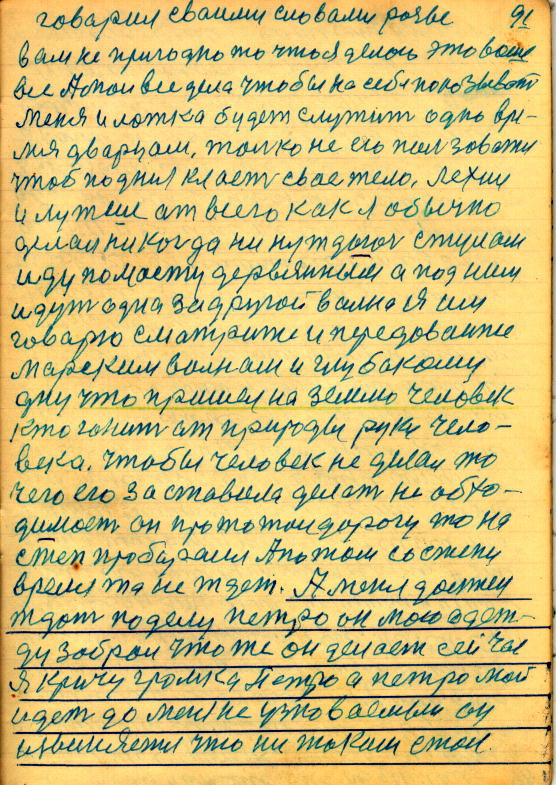 говарил сваими словами розве 91
вам не пригодно то что я делаю это ваше
все А мои все дела чтобы на себя показывают
меня и лотка будет служит одно вре-
мя дварцам, толко не его ползовати
чтоб поднил кладет свае тело, лехии
и лутше ат всего как я обычно
делал никогда ни нуждаюс стулам
иду по мосту дервянным а под ним
идут одна за другой вална я им
говарю сматрите и передоваите
марским валнам и глубакому
дну что пришел на землю человек
кто гонит ат природы руки чело-
века. чтобы человек не делал то
чего его заставила делат не обхо-
димост он протоптои дорогу то на
степ пробирали А потом со степи
время та не ждет. А меня должен
ждат по делу петро он мою одеж-
ду забрал что же он делает сей час
я кричу громка Петро а петро мой
идет до меня не узноваемым он
извиняется что ни таким стал.